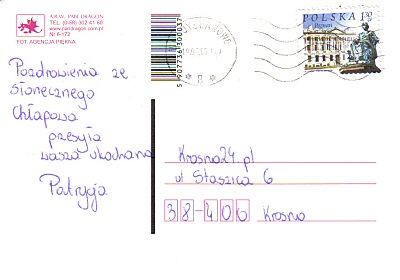 A.R.W. PAN DRAGON
TEL. (0-58) 302 41 60
www.pandragon.com.pl
Nr 6-172
FOT. AGENCJA PIĘKNA
5907738300037
POLSKA 1,30
Poznań
Pozdrowienia ze
słonecznego
Chłapowa
przesyła
wasza ukochana
Patrycja
Krosno24.pl
ul Staszica 6
38-400 Krosno